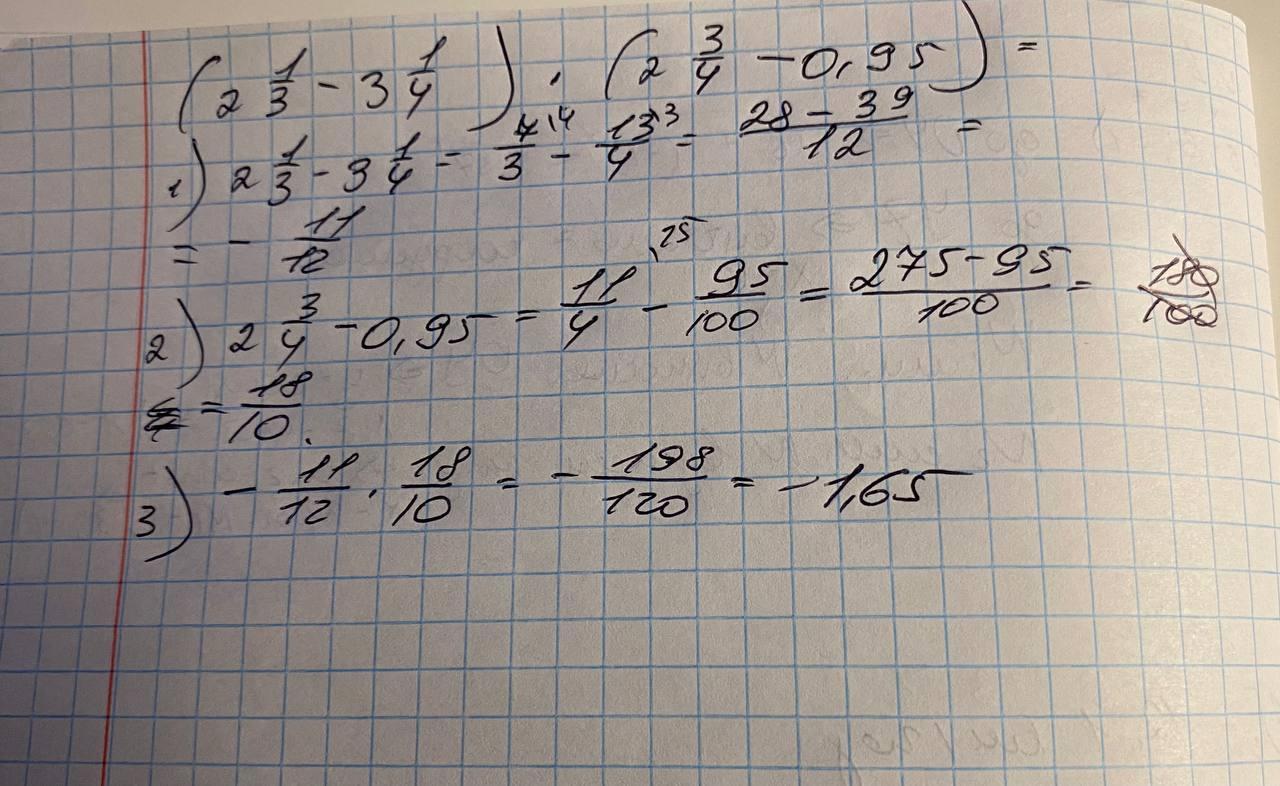 (2 1/3 - 3 1/4) · (2 3/4 - 0,95) =
1) 2 1/3 - 3 1/4 = 7/3 ·4 - 13/4 ·3 = (28 - 39)/12 =
= - 11/12
2) 2 3/4 - 0,95 = 11/4 ·25 - 95/100 = (275 - 95)/100 = 180/100
= 18/10.
3) - 11/12 · 18/10 = - 198/120 = -1,65